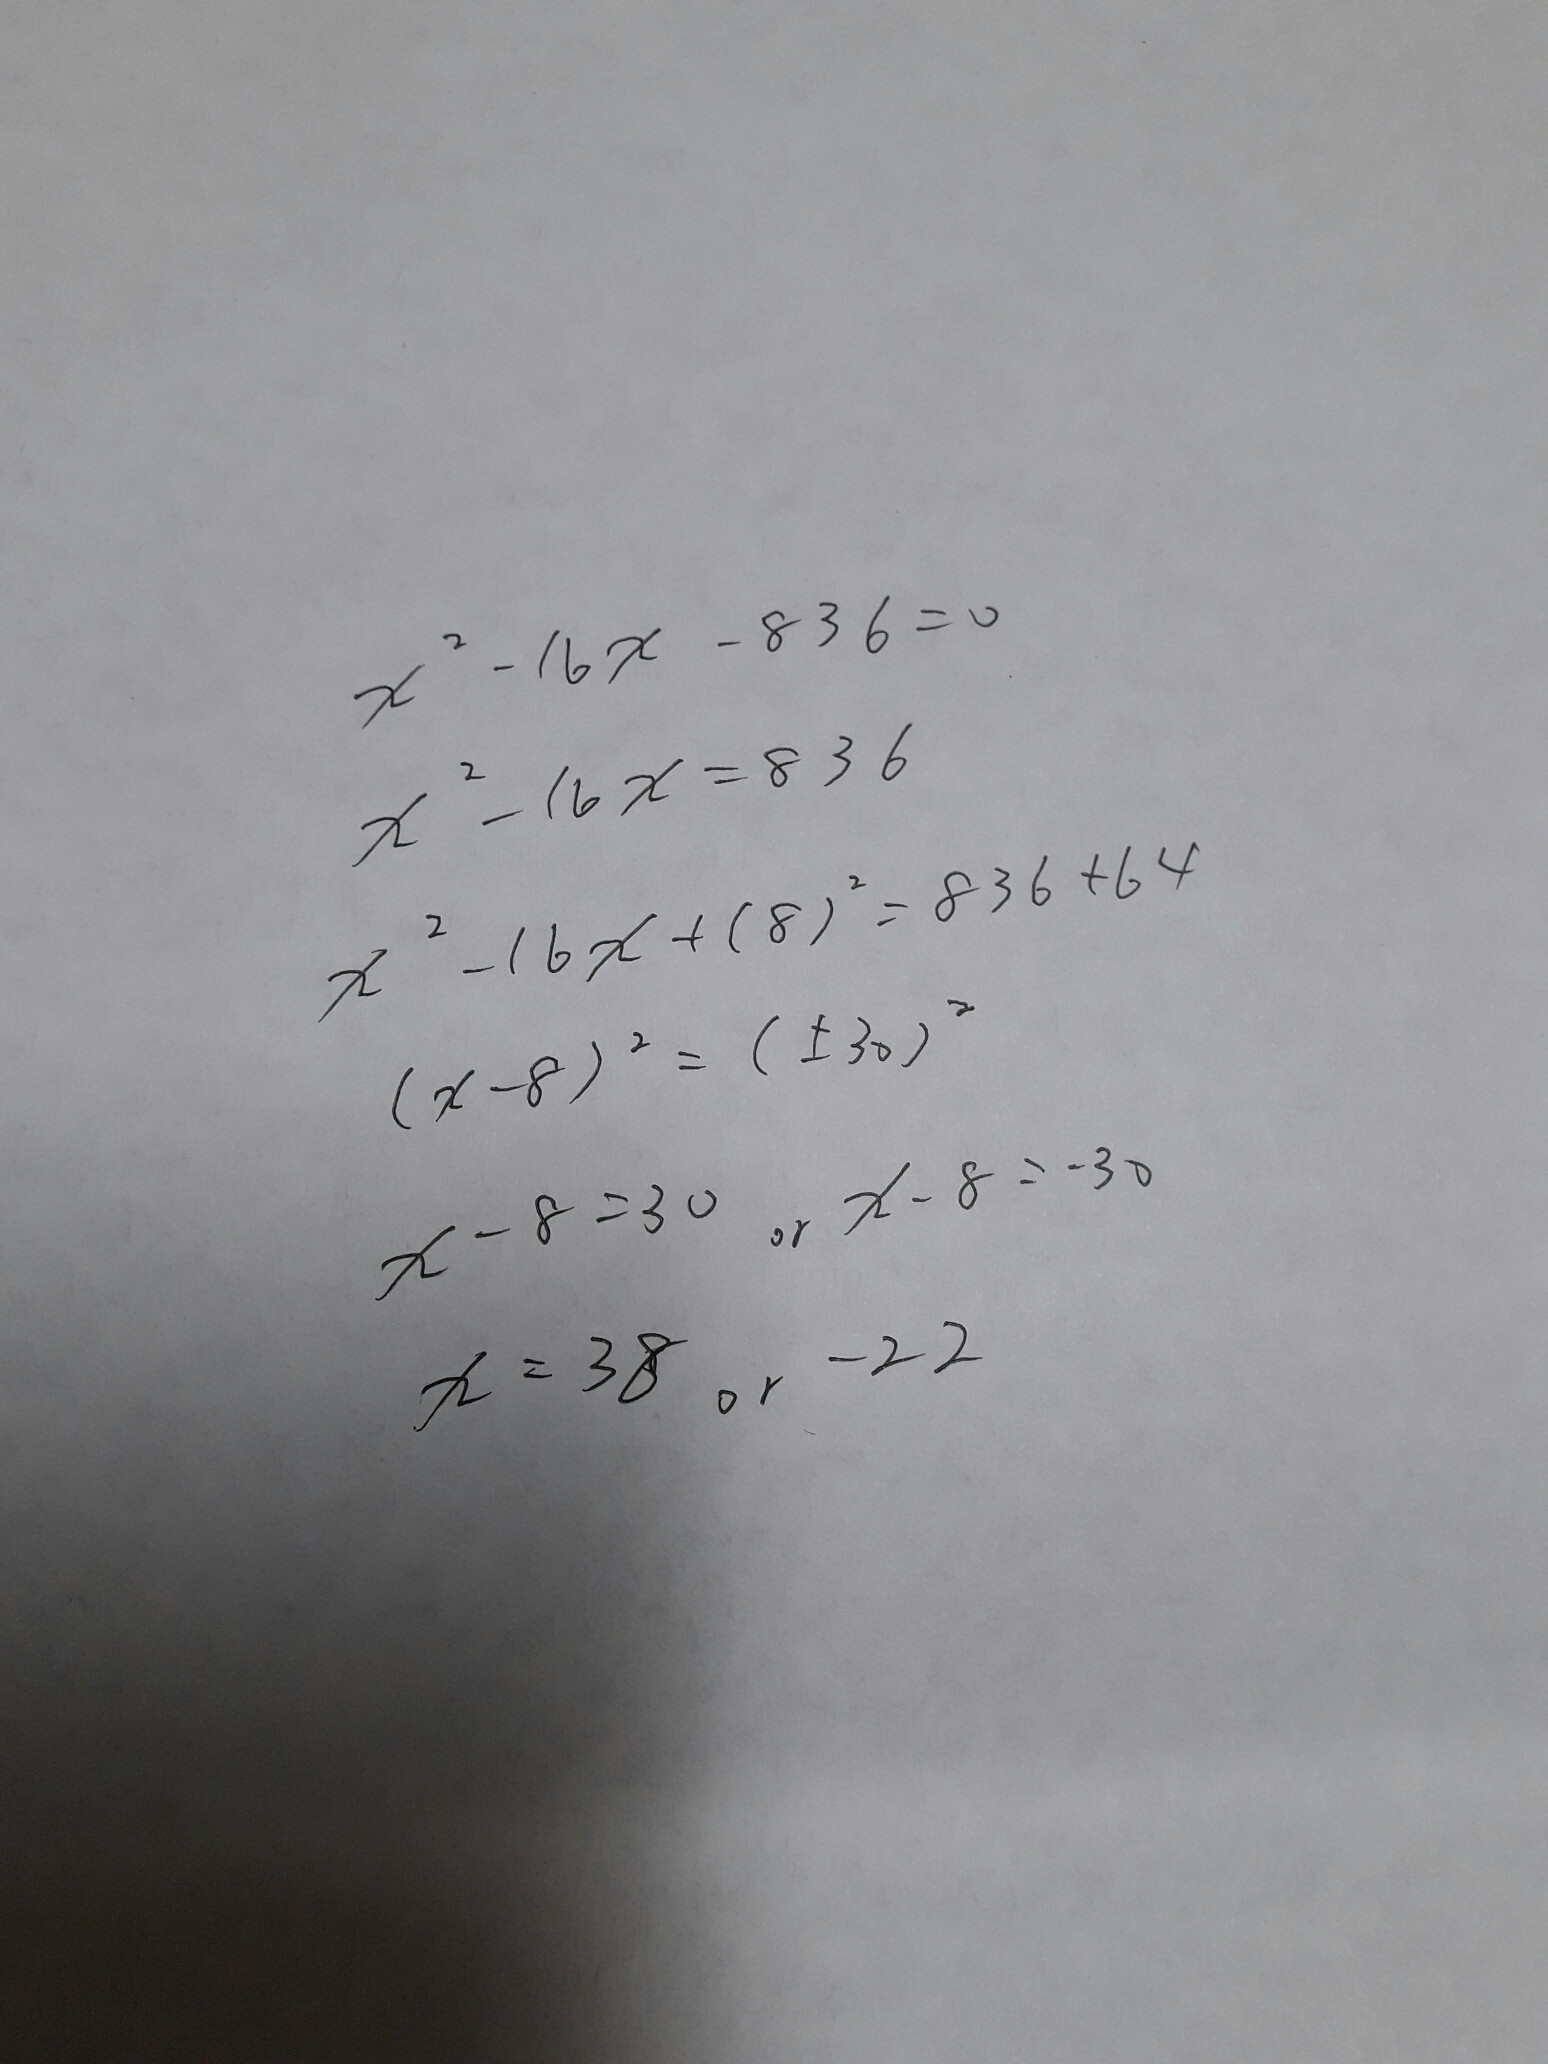 x² - 16x - 836 = 0
x² - 16x = 836
x² - 16x + (8)² = 836 + 64
(x - 8)² = (±30)²
x - 8 = 30 or x - 8 = -30
x = 38 or -22